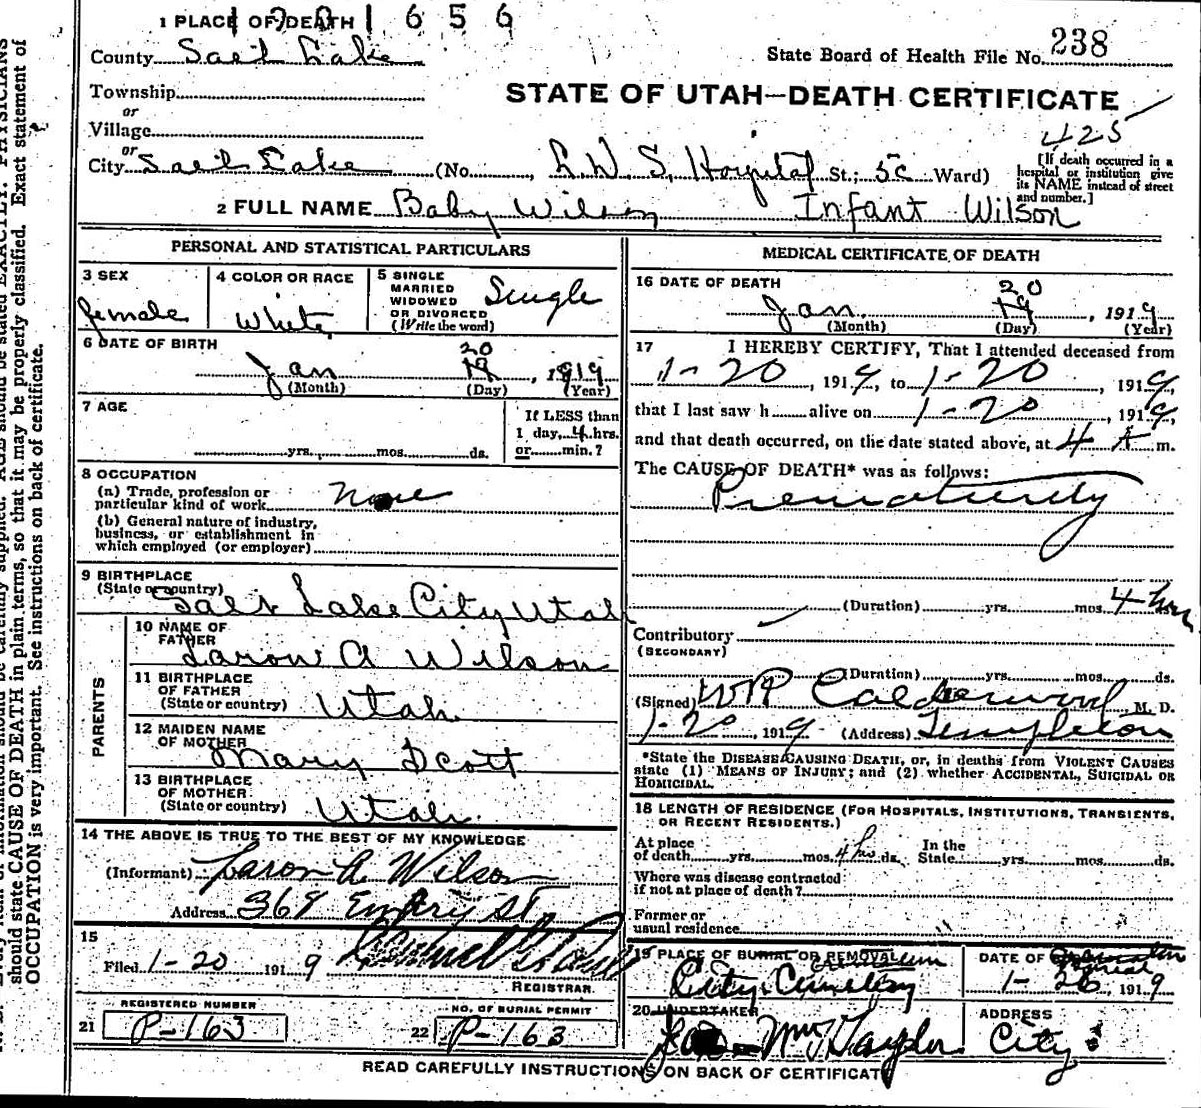 1 PLACE OF DEATH 1 6 5 6
County Salt Lake
State Board of Health File No. 238
Township
STATE OF UTAH—DEATH CERTIFICATE
or
Village
425
or
City Salt Lake (No. L. D. S. Hospital St.; 5 Ward)
[If death occurred in a
hospital or institution give
its NAME instead of street
and number.]
2 FULL NAME Baby Wilson Infant Wilson
PERSONAL AND STATISTICAL PARTICULARS
3 SEX
female
4 COLOR OR RACE
White
5 SINGLE
MARRIED
WIDOWED
OR DIVORCED
(Write the word)
Single
6 DATE OF BIRTH
Jan 20 19, 1919
(Month) (Day) (Year)
7 AGE
yrs. mos. ds.
If LESS than
1 day, 4 hrs.
or min.?
8 OCCUPATION
(a) Trade, profession or
particular kind of work None
(b) General nature of industry,
business, or establishment in
which employed (or employer)
9 BIRTHPLACE
(State or country)
Salt Lake City Utah
PARENTS
10 NAME OF
FATHER
Laron A Wilson
11 BIRTHPLACE
OF FATHER
(State or country) Utah
12 MAIDEN NAME
OF MOTHER
Mary Scott
13 BIRTHPLACE
OF MOTHER
(State or country) Utah
14 THE ABOVE IS TRUE TO THE BEST OF MY KNOWLEDGE
(Informant) Laron A Wilson
Address 368 Emery St
15
Filed 1-20 1919
REGISTRAR.
REGISTERED NUMBER
21 P-163
NO. OF BURIAL PERMIT
22 P-163
MEDICAL CERTIFICATE OF DEATH
16 DATE OF DEATH
Jan. 20 19, 1919
(Month) (Day) (Year)
17 I HEREBY CERTIFY, That I attended deceased from
1-20, 1919, to 1-20, 1919,
that I last saw h alive on 1-20, 1919,
and that death occurred, on the date stated above, at 4 A m.
The CAUSE OF DEATH* was as follows:
Prematurity
(Duration) yrs. mos. 4 hrs
Contributory
(SECONDARY)
(Duration) yrs. mos. ds.
(Signed) WR Calderwood M. D.
1-20, 1919 (Address) Templeton
*State the DISEASE CAUSING DEATH, or, in deaths from VIOLENT CAUSES
state (1) MEANS OF INJURY; and (2) whether ACCIDENTAL, SUICIDAL OR
HOMICIDAL.
18 LENGTH OF RESIDENCE (FOR HOSPITALS, INSTITUTIONS, TRANSIENTS,
OR RECENT RESIDENTS.)
At place
of death yrs. mos. 4 hrs ds. In the
State yrs. mos. ds.
Where was disease contracted
if not at place of death?
Former or
usual residence
19 PLACE OF BURIAL OR REMOVAL
City Cemetery
DATE OF Burial
1-26, 1919
20 UNDERTAKER
Jos. Wm Taylor
ADDRESS
City
READ CAREFULLY INSTRUCTIONS ON BACK OF CERTIFICATE
should state CAUSE OF DEATH in plain terms, so that it may be properly classified. Exact statement of
OCCUPATION is very important. See instructions on back of certificate.